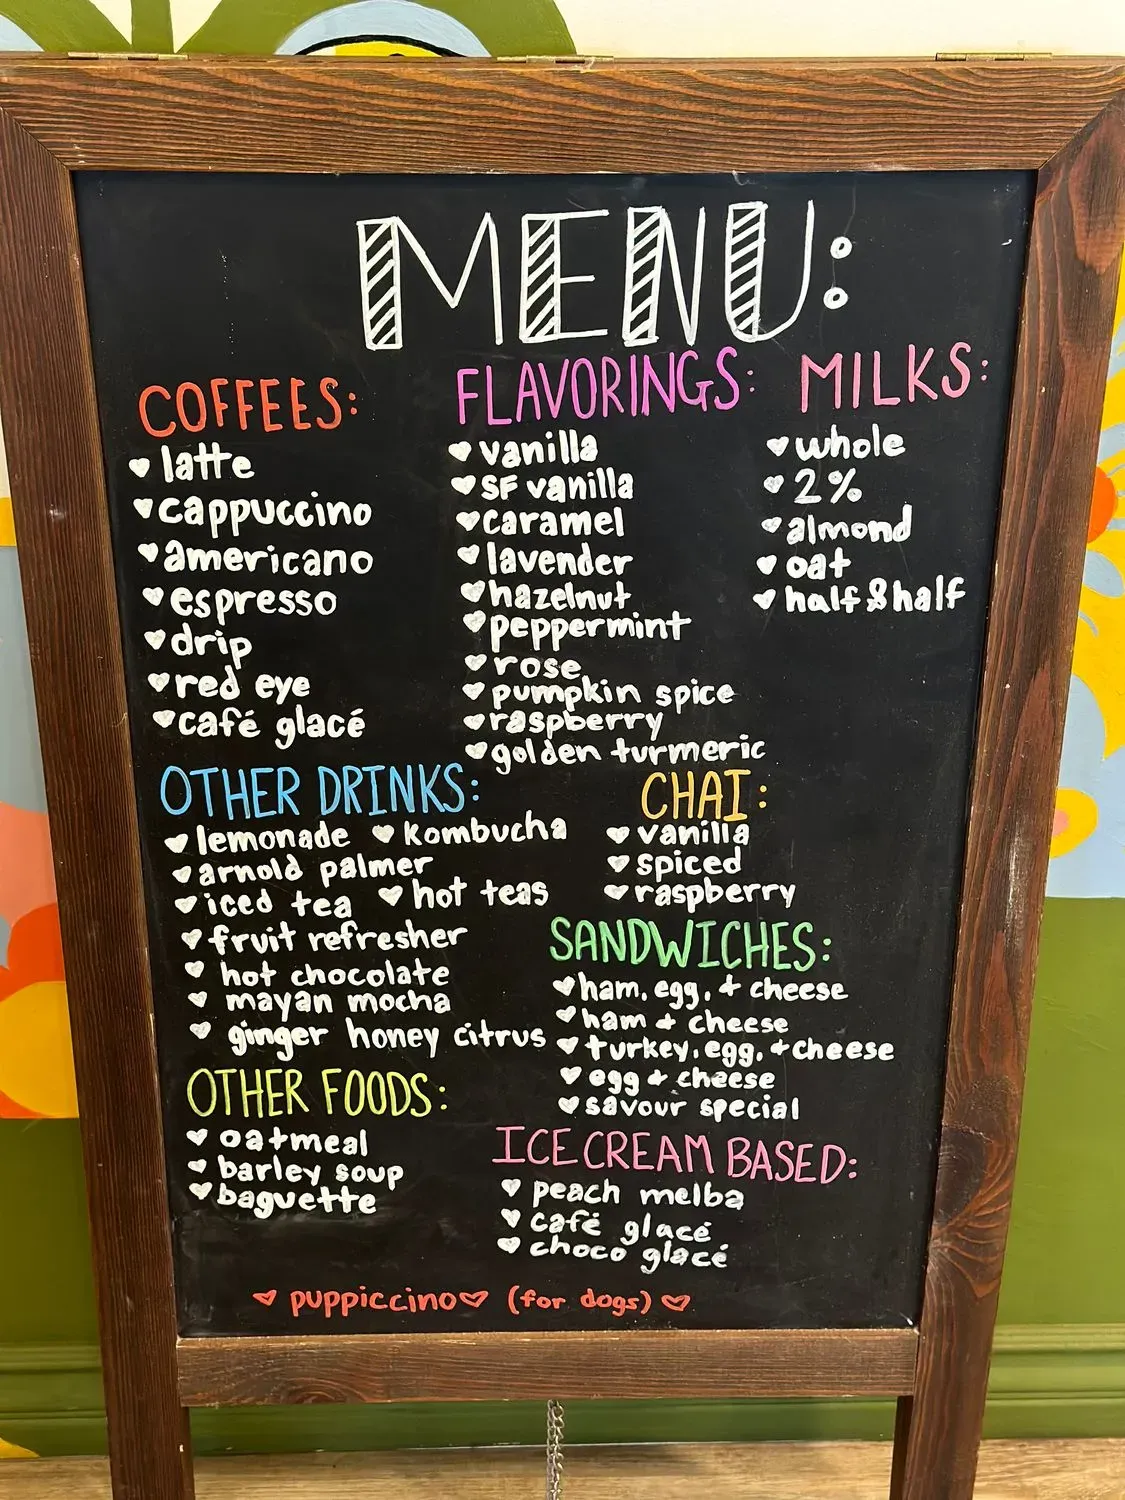 MENU:
COFFEES:
♥ latte
♥ cappuccino
♥ americano
♥ espresso
♥ drip
♥ red eye
♥ café glacé
FLAVORINGS:
♥ vanilla
♥ SF vanilla
♥ caramel
♥ lavender
♥ hazelnut
♥ peppermint
♥ rose
♥ pumpkin spice
♥ raspberry
♥ golden turmeric
MILKS:
♥ whole
♥ 2%
♥ almond
♥ oat
♥ half & half
OTHER DRINKS:
♥ lemonade ♥ kombucha
♥ arnold palmer
♥ iced tea ♥ hot teas
♥ fruit refresher
♥ hot chocolate
♥ mayan mocha
♥ ginger honey citrus
CHAI:
♥ vanilla
♥ spiced
♥ raspberry
SANDWICHES:
♥ ham, egg, + cheese
♥ ham + cheese
♥ turkey, egg, + cheese
♥ egg + cheese
♥ savour special
OTHER FOODS:
♥ oatmeal
♥ barley soup
♥ baguette
ICE CREAM BASED:
♥ peach melba
♥ café glacé
♥ choco glacé
♥ puppiccino ♥ (for dogs) ♥